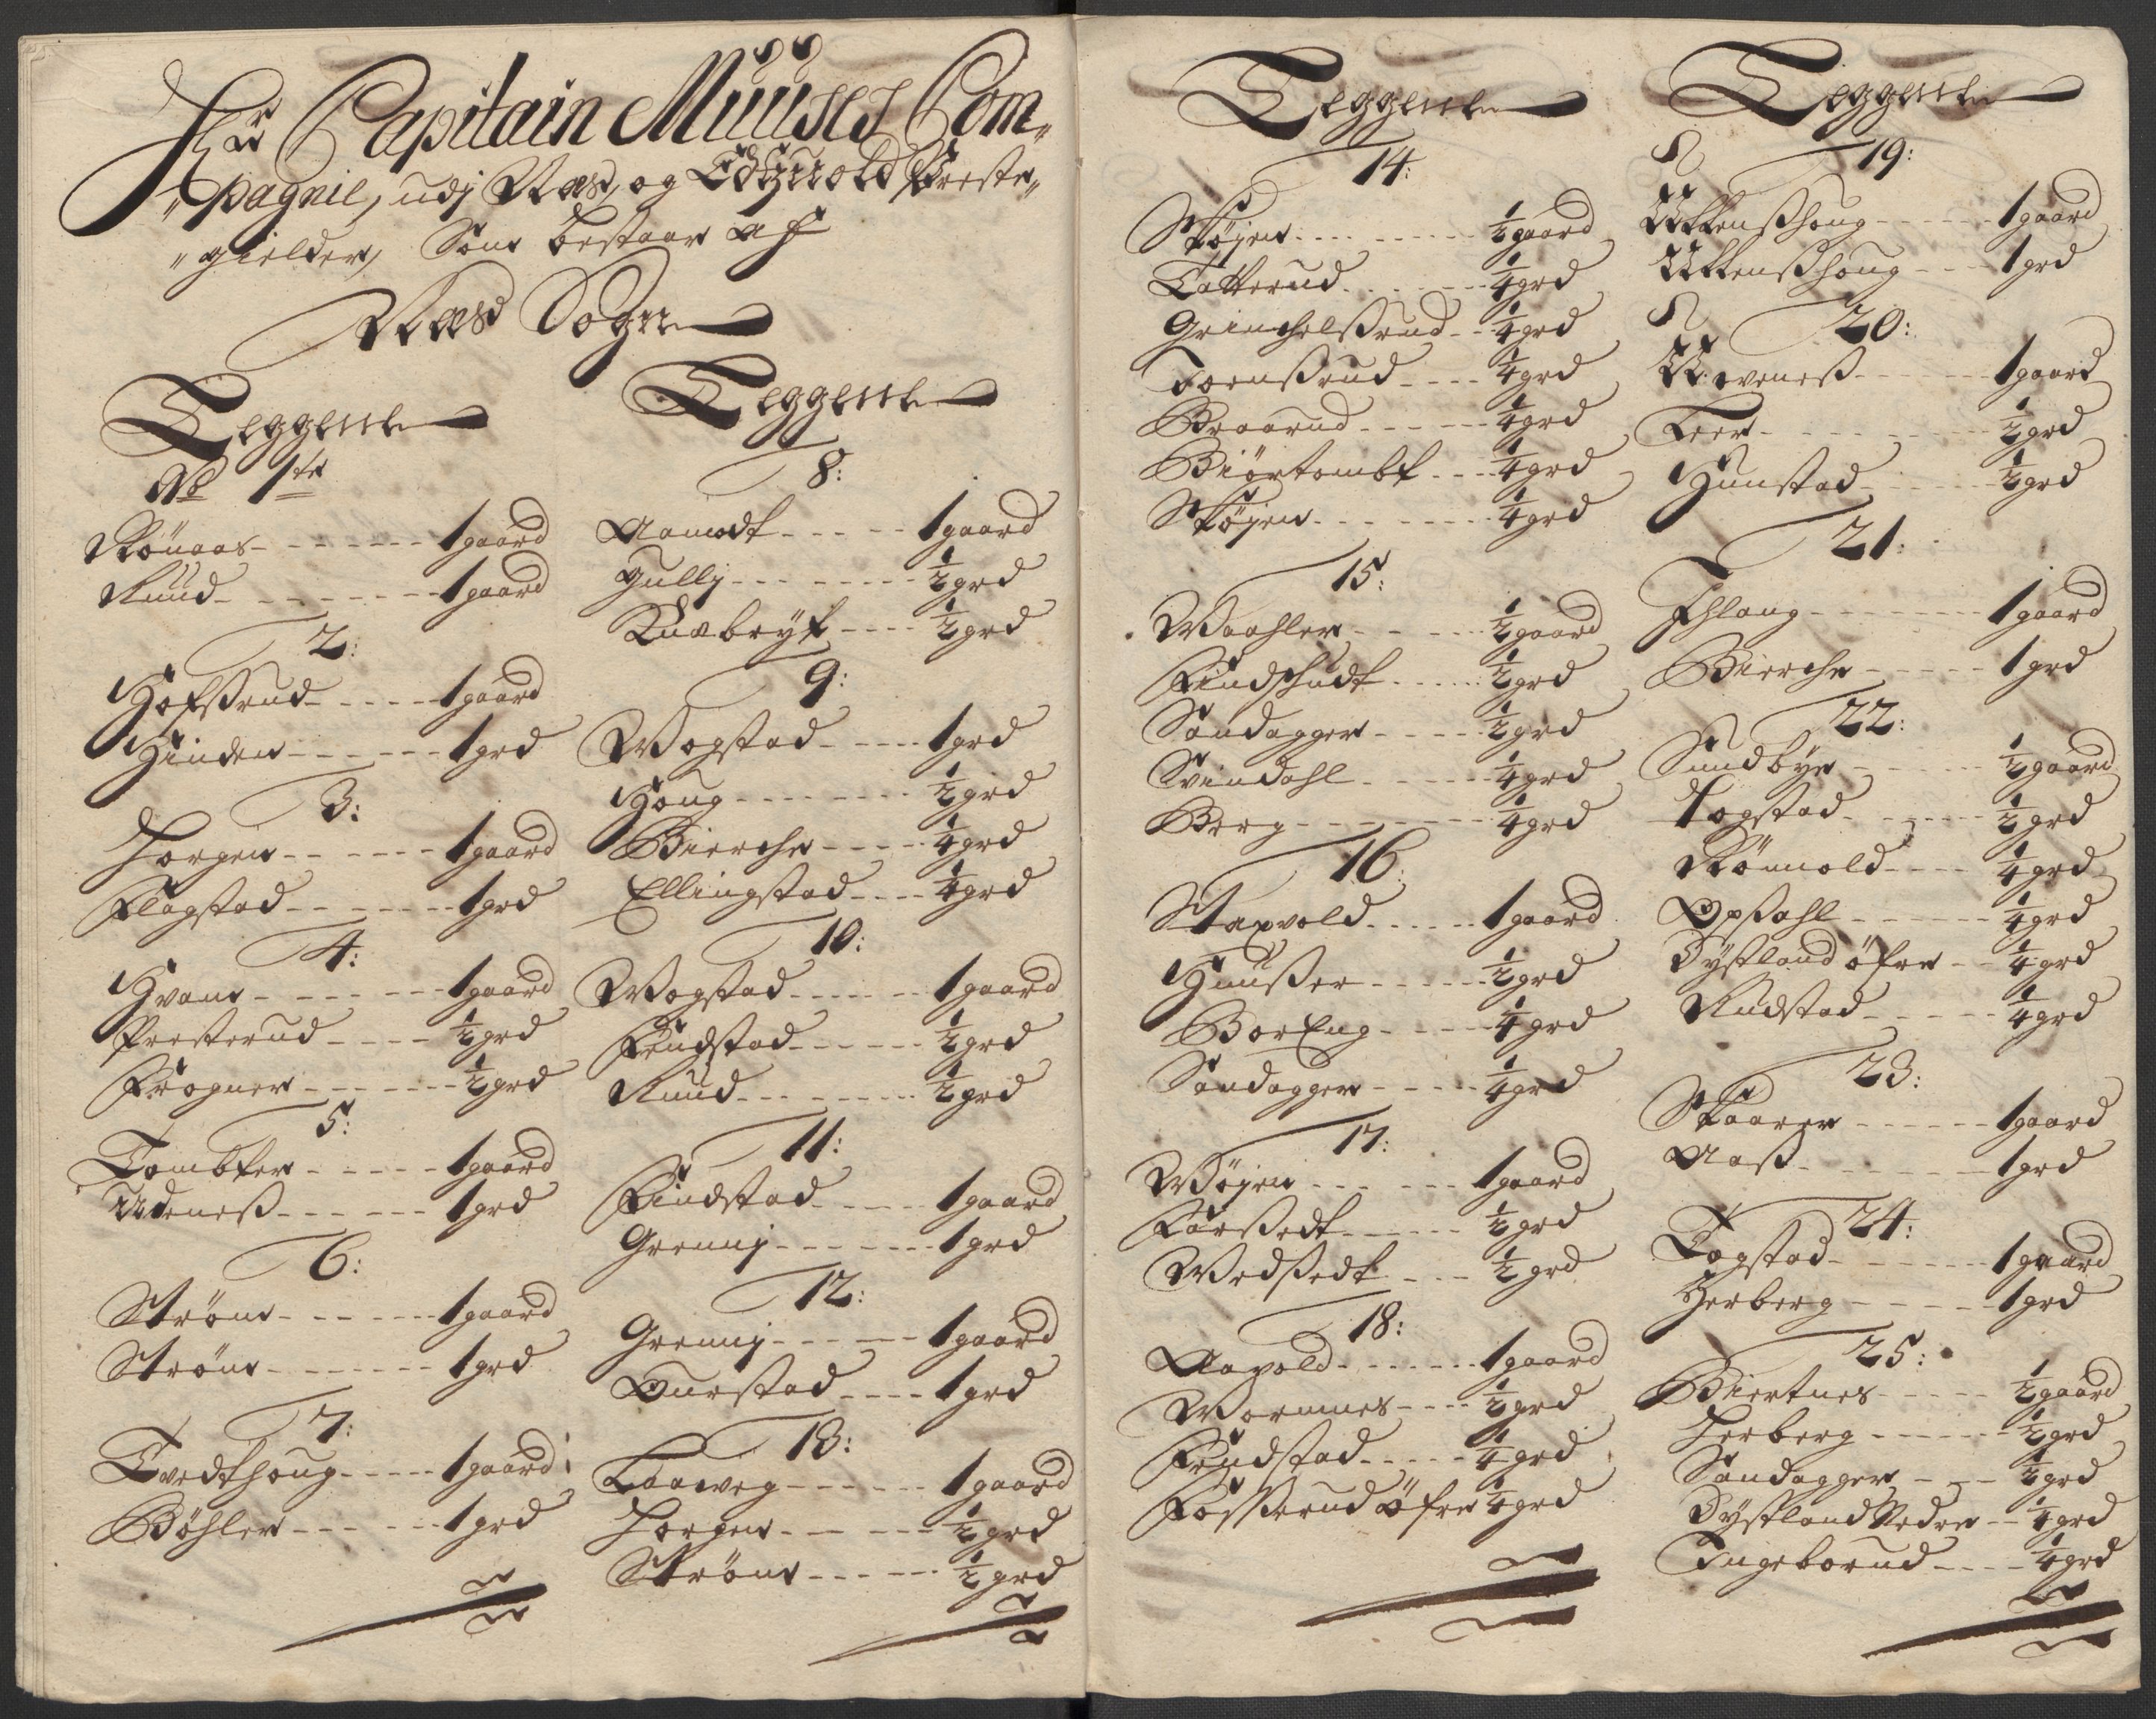 Hr Capitain Muuses Com„
„pagnie, udj Næs, og Edtzvold Preste„
„gielder, Som bestaar af
Næs Sogn
Leggene
No 1te
Rönaas - - - - - - - 1 gaard
Ruud - - - - - - - - 1 gaard
2:
Hofsrud - - - - - 1 gaard
Hinden - - - - - - 1 grd
3:
Horgen - - - - - - 1 gaard
Flagstad - - - - - - 1 grd
4:
Hvam - - - - - - 1 gaard
Presterud - - - - ½ grd
Frogner - - - - - - ½ grd
5:
Tombter - - - - - 1 gaard
Udeneß - - - - - - 1 grd
6:
Ström - - - - - - 1 gaard
Ström - - - - - - 1 grd
7:
Tvedthoug - - - - 1 gaard
Böhler - - - - - - 1 grd
Leggene
8:
Aamodt - - - - - 1 gaard
Gullj - - - - - - - ½ grd
Knabryt - - - - ½ grd
9:
Wogstad - - - - - 1 grd
Houg - - - - - - - ½ grd
Bierche - - - - - ¼ grd
Ellingstad - - - - ¼ grd
10:
Wogstad - - - - - - 1 gaard
Frudstad - - - - - ½ grd
Ruud - - - - - - - ½ grd
11:
Findstad - - - - - 1 gaard
Grennj - - - - - - - 1 grd
12:
Grennj - - - - - - 1 gaard
Ourstad - - - - 1 grd
13:
Laaweg - - - - - - 1 gaard
Horgen - - - - - - ½ grd
Ström - - - - - ½ grd
Leggene
14:
Sköyen - - - - - - - - ½ gaard
Latterud - - - - - - ¼ grd
Grinchelßrud - - ¼ grd
Toenßrud - - - - ¼ grd
Braarud - - - - - - ¼ grd
Biörtombt - - - ¼ grd
Sköyen - - - - - - - ¼ grd
15:
Waahler - - - - - ½ gaard
Findshudt - - - - - ½ grd
Sandagger - - - - - ½ grd
Svindahl - - - - - - ¼ grd
Berg - - - - - - - - ¼ grd
16.
Staxvold - - - - - 1 gaard
Huußer - - - - - - ½ grd
BorEng - - - - - ¼ grd
Sandagger - - - - - ¼ grd
17:
Wöyen - - - - - - 1 gaard
Farßedt - - - - - - ½ grd
Wedßedt - - - ½ grd
18:
Aavold - - - - - - - 1 gaard
Wormnes - - - - ½ grd
Frudstad - - - - - ¼ grd
Foßerud öfre ¼ grd
Leggene
19:
Uttenßhoug - - - - - 1 gaard
Uttenßhoug - - - - 1 grd
20:
Uveneß - - - - - - 1 gaard
Leer - - - - - - - - - ½ grd
Hunstad - - - - - - ½ grd
21:
Ihlang - - - - - - - 1 gaard
Bierche - - - - - - 1 grd
22:
Sundbye - - - - - - ½ gaard
Togstad - - - - - - - ½ grd
Römold - - - - ¼ grd
Opßahl - - - - - - ¼ grd
Dystland öfre - - ¼ grd
Rudstad - - - - - ¼ grd
23:
Skaarer - - - - - - 1 gaard
Aaß - - - - - - - - 1 grd
24:
Togstad - - - - - - - 1 gaard
Herberg - - - - - 1 grd
25:
Biertnes - - - - - ½ gaard
Herberg - - - - - - ½ grd
Sandagger - - - - ½ grd
Dystland Nedre - - ¼ grd
Ingeborud - - - - ¼ grd